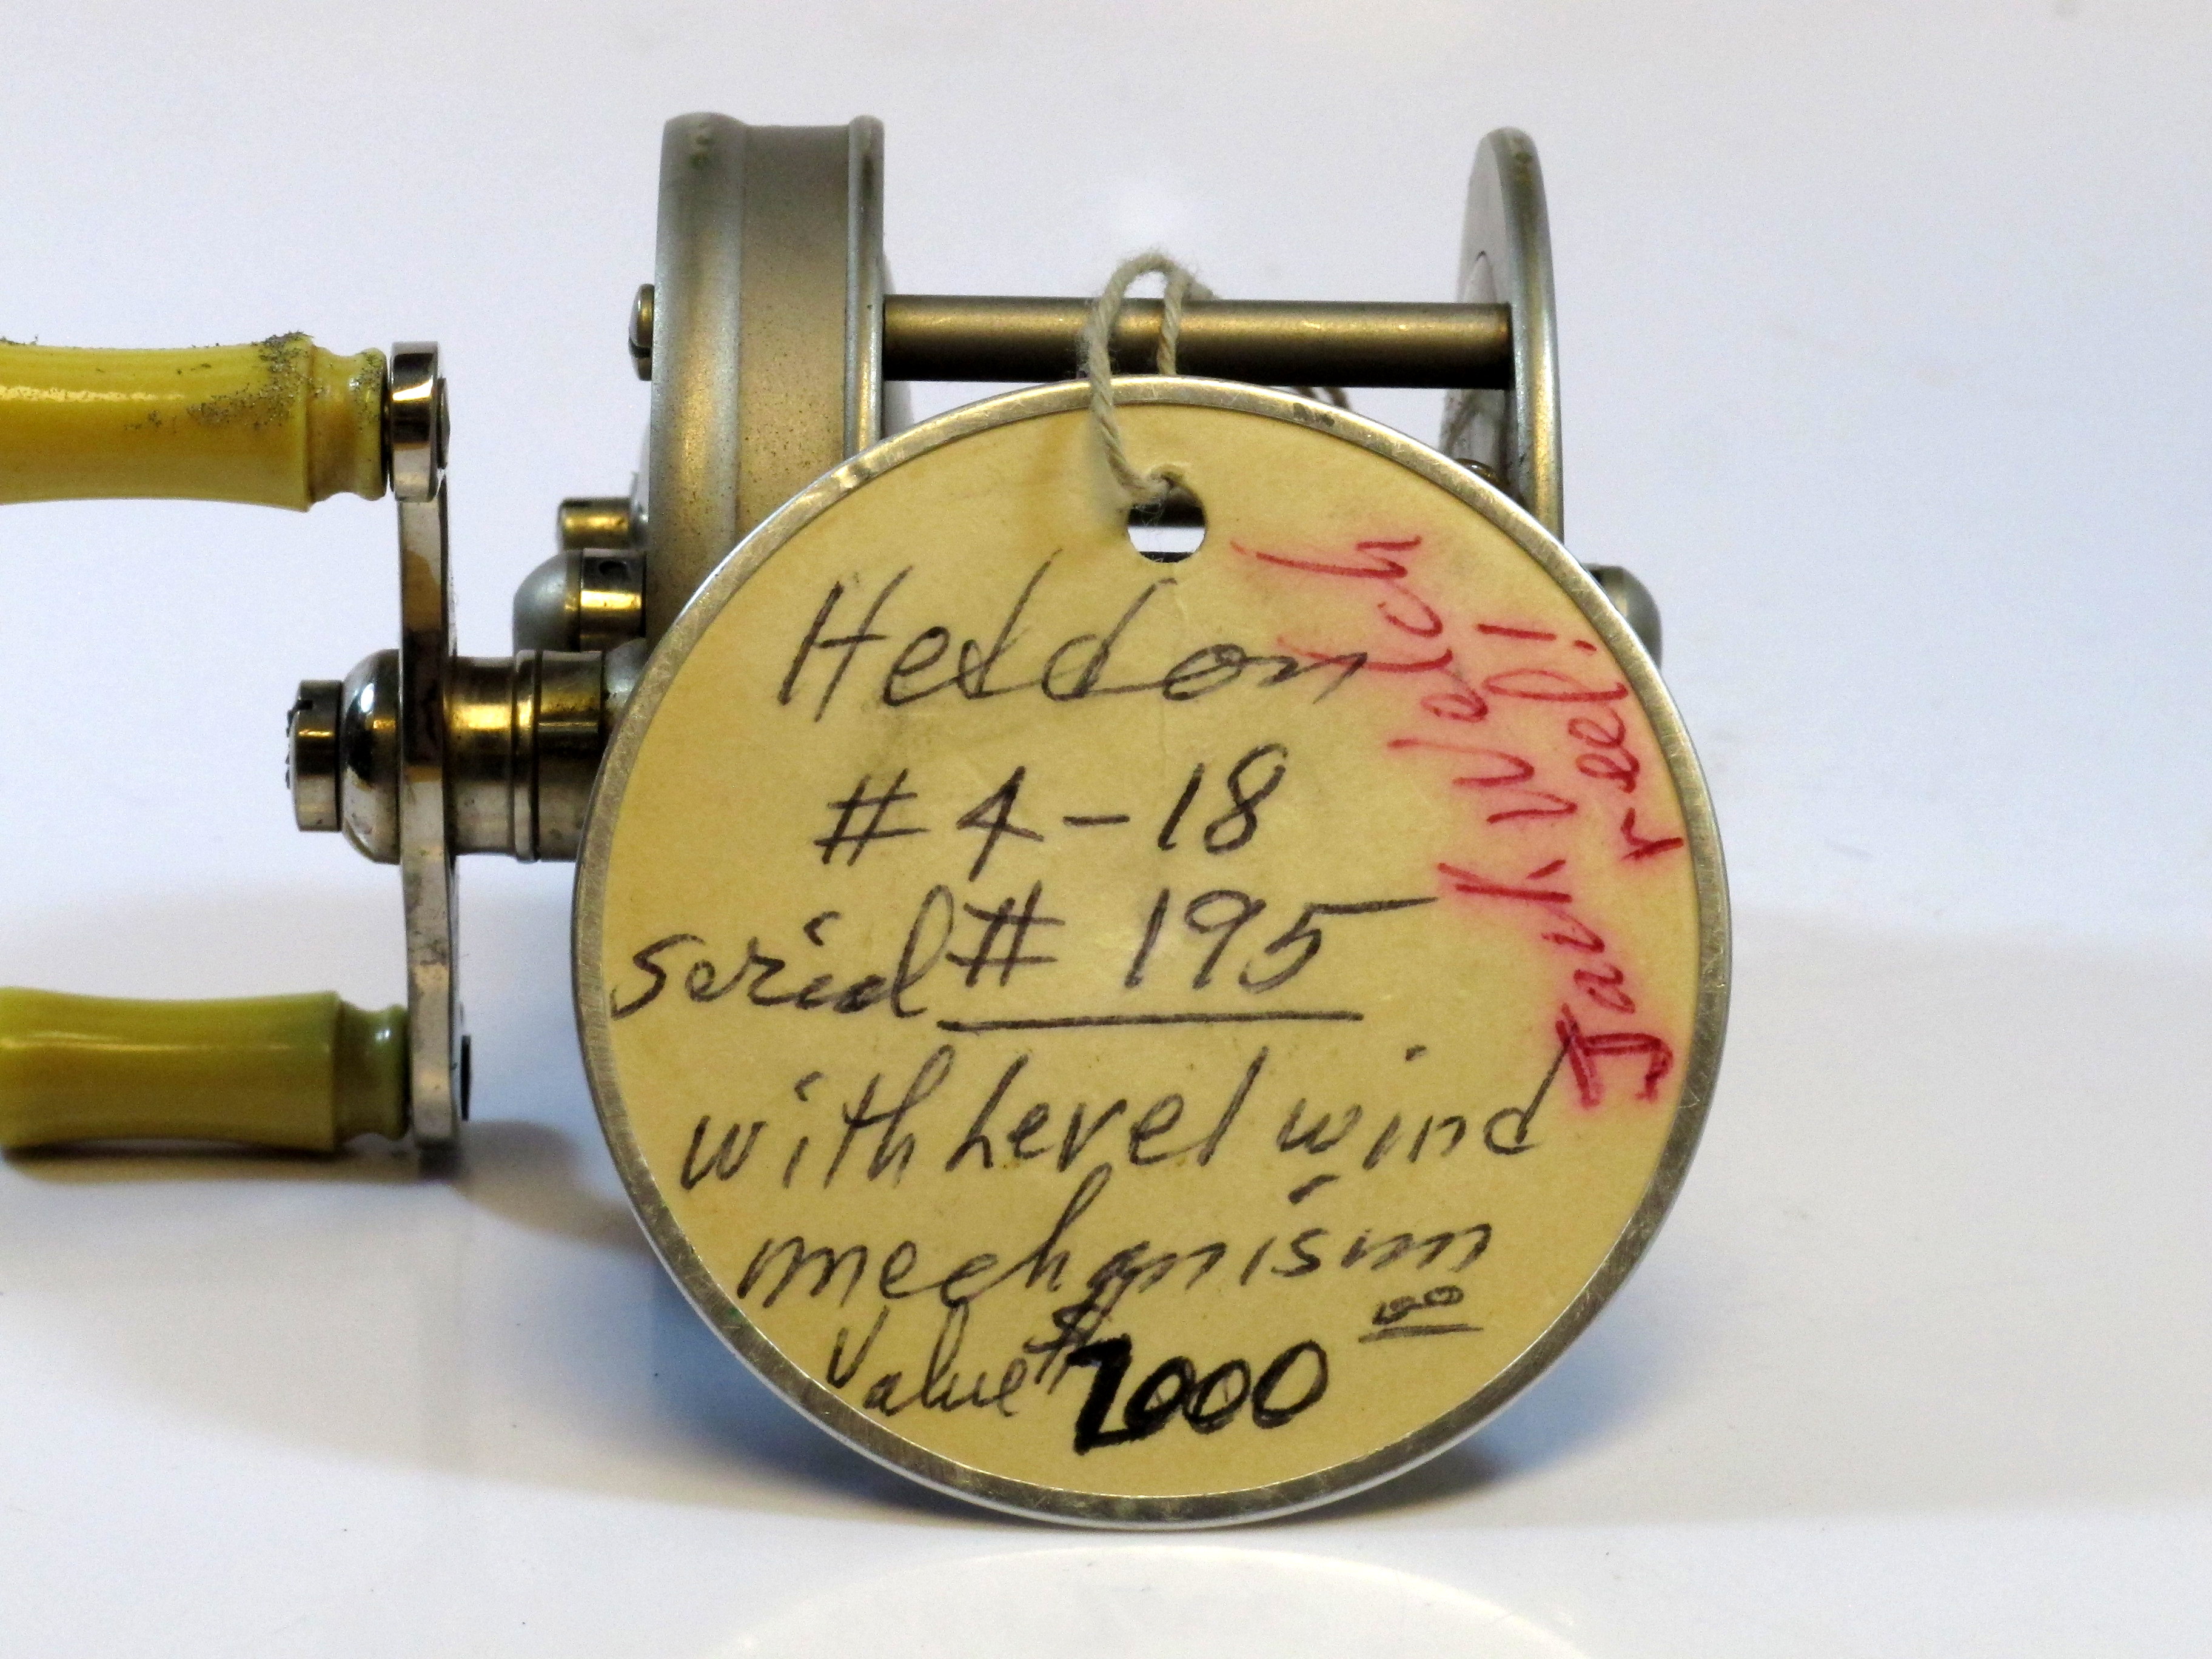 Heddon
#4-18
serial # 195
with Level wind
mechanism
Value $ 2000 00
Jack Welch
reel!